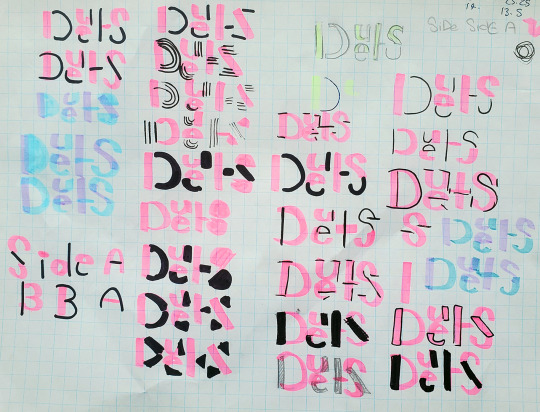 Duets
Duets
Duets
Duets
Duets
Side A
B B A
Duets
Duets
Duets
Duets
Duets
Duets
Duets
Duets
Duets
Duets
D
Duets
Duets
Duets
Duets
Duets
Duets
14.
13.5
Side Side A
Duets
Duets
Duets
S Duets
Duets
Duets
Duets